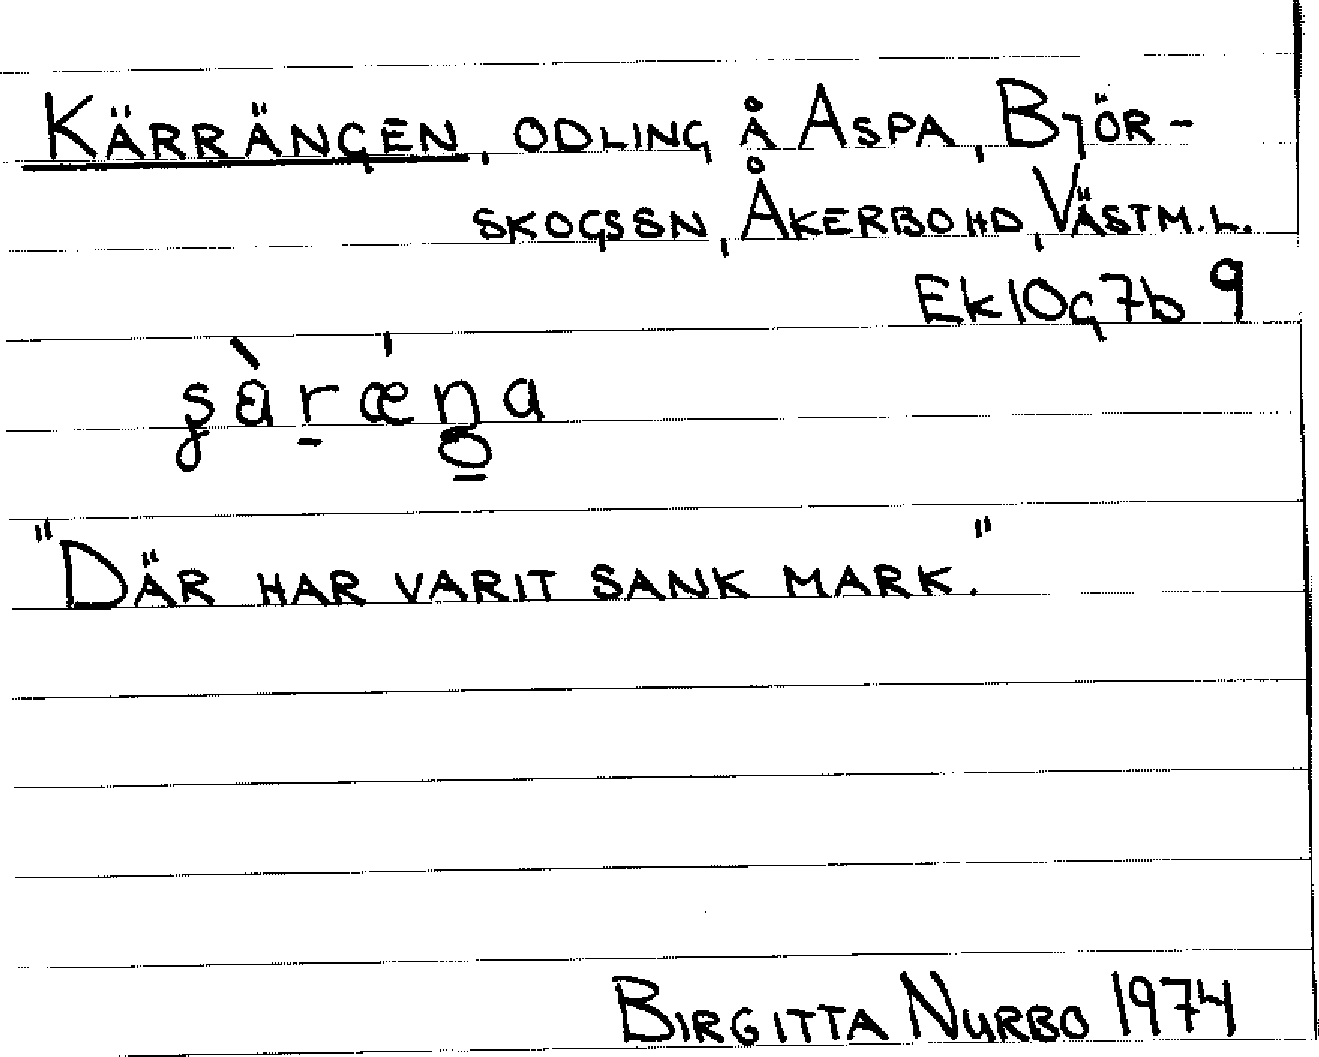 KÄRRÄNGEN, ODLING Å ASPA, BJÖR-
SKOGSSN, ÅKERBOHD, VÄSTM.L.
Ek10g7b 9
"DÄR HAR VARIT SANK MARK."
BIRGITTA NURBO 1974